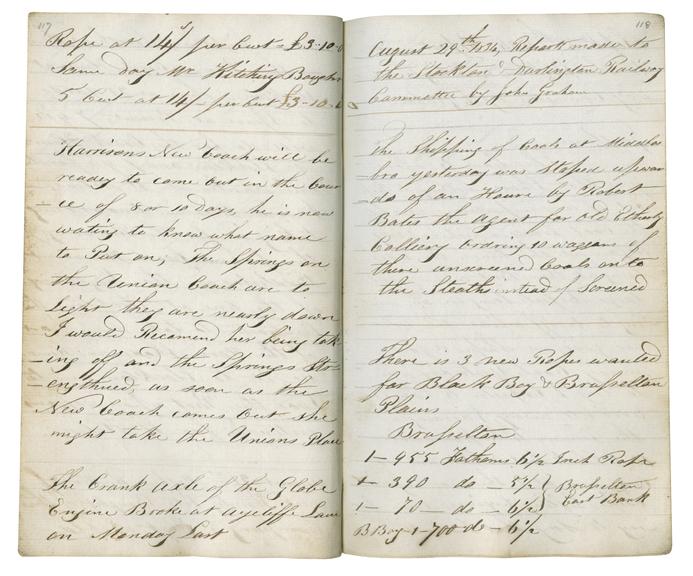 117
Rope at 14/ per Cwt £3-10-0
Same day Mr Kitching Bought
5 Cwt at 14/- per Cwt £3-10-0
Harrisons New Coach will be
ready to come out in the Cour
-ce of 8 or 10 Days, he is now
wating to know what name
to Put on, The Springs on
the Union Coach are to
Light they are nearly down
I would Recomend her being tak
-ing off and the Springs Str
-engthned, as soon as the
New Coach comes out she
might take the Unions Place
The Crank axle of the Globe
Engine Broke at Aycliffe Lane
on Monday Last
118
August 29th 1834, Report made to
the Stockton & Darlington Railway
Committee by John Graham
The Shipping of Coals at Middles
bro yesterday was Stoped upwar
-ds of an Houre by Robert
Bates the Agent for Old Etherly
Colliery Ordring 10 waggons of
there unscreened Coals on to
the Steaths instead of Screened
There is 3 new Ropes wanted
for Black Boy & Brusselton
Plains
Brusselton
1 - 955 Fathems 6 1/2 Inch Rope
1 - 390 do - 5 1/2 } Brusselton
1 - 70 - do - 6 1/2 } East Bank
B Boy 1 - 700 do - 6 1/2